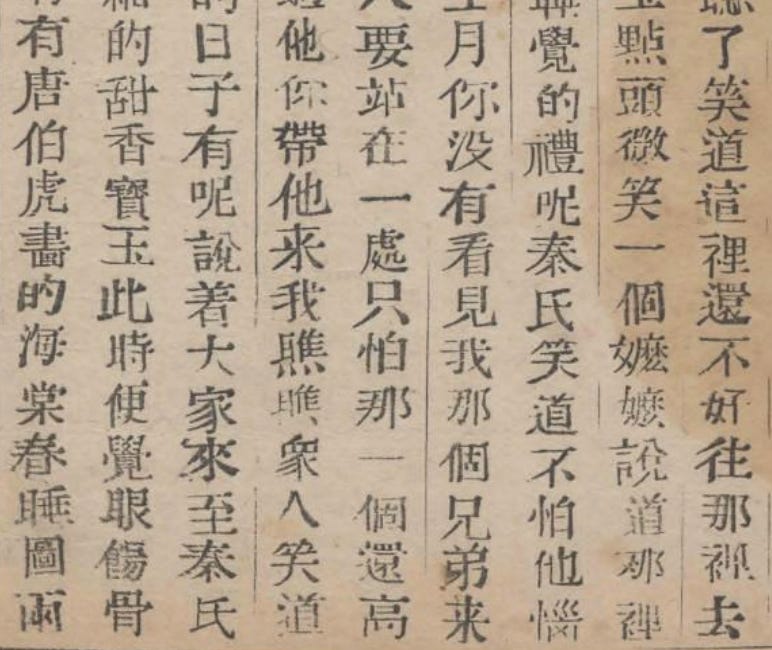 聽了笑道這裡還不好往那裡去
玉點頭微笑一個嬷嬷說道那裡
覺的禮呢秦氏笑道不怕他惱
上月你没有看見我那個兄弟来
人要站在一處只怕那一個還高
他你帶他来我瞧瞧衆人笑道
的日子有呢說着大家來至秦氏
的甜香寶玉此時便覺眼餳骨
有唐伯虎畫的海棠春睡圖兩